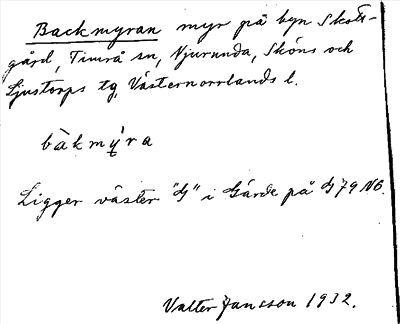 Backmyran myr på byn Skott-
gård, Timrå sn, Njurunda, Sköns och
Ljustorps tg, Västernorrlands l.
bàkmy̆ra
Ligger väster "G" i Gärde på G 79 NO.
Valter Jansson 1932.